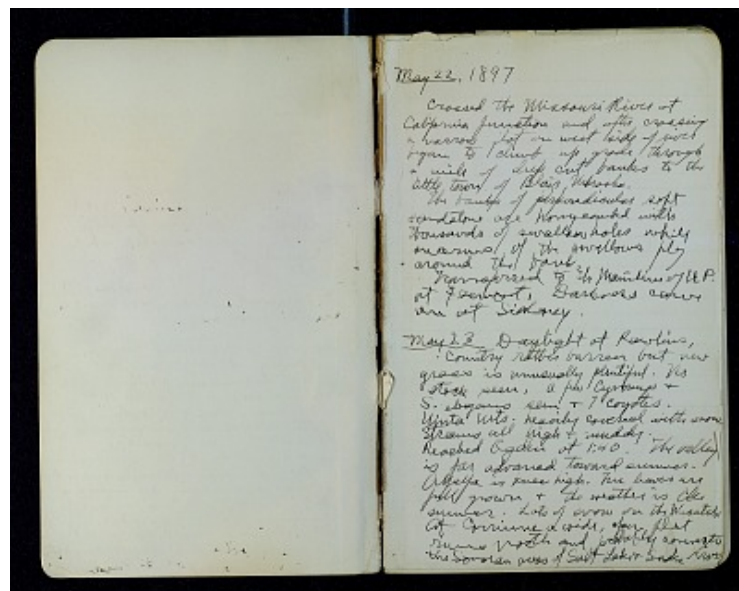 May 22, 1897
Crossed the Missouri River at
California Junction and after crossing
a narrow flat on west side of river
began to climb up grade through
a mile of deep cut banks to the
little town of Blair Nebraska.
The banks of perpendicular soft
sandstone are honeycombed with
thousands of swallow holes while
of the swallows play
around the bank.
Transferred to the Mainline of U.P.
at Fremont, Darkness came
on at Sidney.
May 23 Daylight at Rawlins,
Country rather barren but new
grass is unusually plentiful. No
stock seen, a few Cynomys +
S. elegans seen + 7 coyotes.
Uinta Mts. heavily covered with snow
Streams all high + muddy.
Reached Ogden at 1:40. The valley
is far advanced toward summer.
Alfalfa is knee high. Tree leaves are
full grown + the weather is like
summer. Lots of snow on the Wasatch
At Corinne a wide, open flat
runs north and probably connects
the Sonoran area of Salt Lake + Snake River